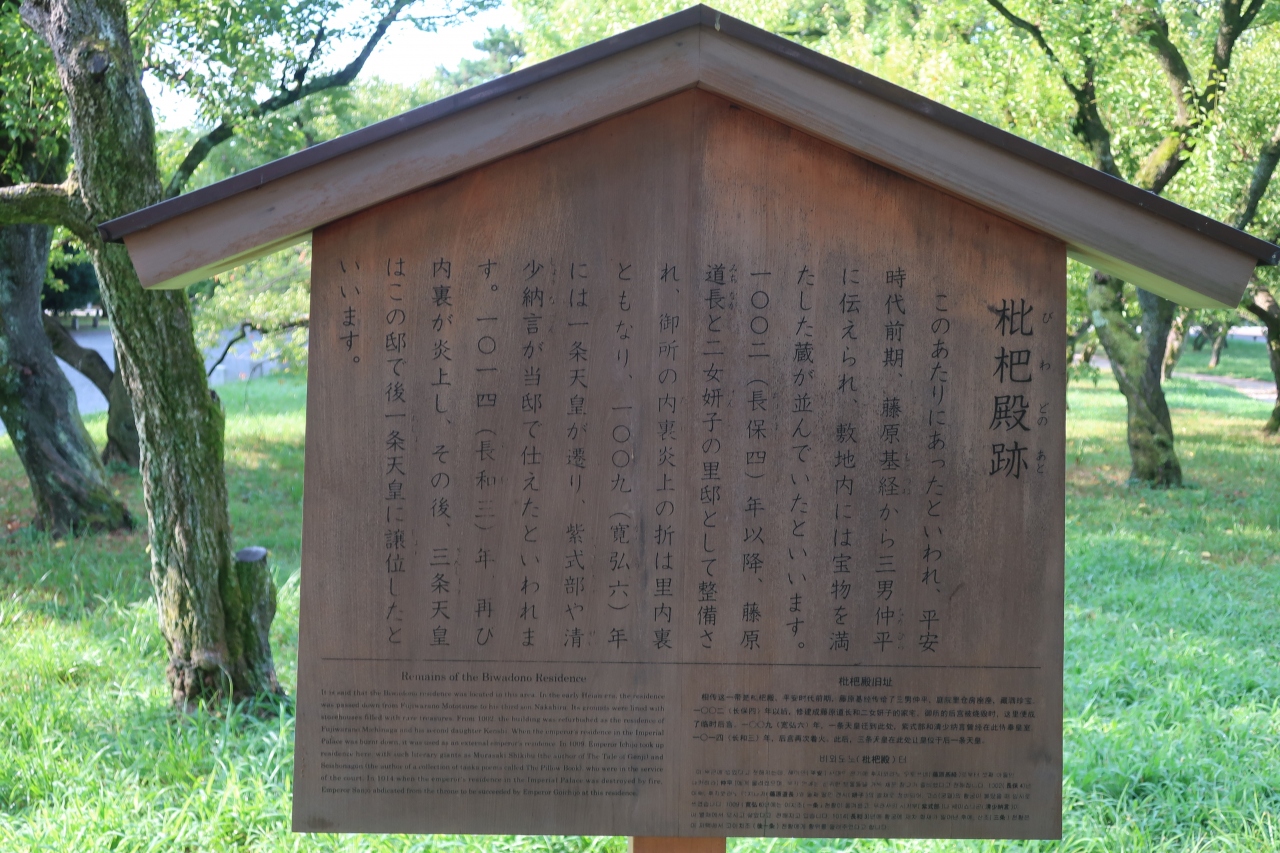 枇杷殿跡
びわどのあと
このあたりにあったといわれ、平安
時代前期、藤原基経から三男仲平
に伝えられ、敷地内には宝物を満
たした蔵が並んでいたといいます。
一〇〇二（長保四）年以降、藤原
道長と二女妍子の里邸として整備さ
れ、御所の内裏炎上の折は里内裏
ともなり、一〇〇九（寛弘六）年
には一条天皇が遷り、紫式部や清
少納言が当邸で仕えたといわれま
す。一〇一四（長和三）年 再び
内裏が炎上し、その後、三条天皇
はこの邸で後一条天皇に譲位したと
いいます。
Remains of the Biwadono Residence
It is said that the Biwadono residence was located in this area. In the early Heian era, the residence
was passed down from Fujiwarano Mototsune to his third son Nakahira. Its grounds were lined with
storehouses filled with rare treasures. From 1002, the building was refurbished as the residence of
Fujiwarano Michinaga and his second daughter Kenshi. When the emperor's residence in the Imperial
Palace was burnt down, it was used as an external emperor's residence. In 1009, Emperor Ichijo took up
residence here, with such literary giants as Murasaki Shikibu (the author of The Tale of Genji) and
Seishonagon (the author of a collection of essays called The Pillow Book), who were in the service
of the court. In 1014 when the emperor's residence in the Imperial Palace was destroyed by fire,
Emperor Sanjo abdicated from the throne to be succeeded by Emperor Goichijo at this residence.
枇杷殿旧址
相传这一带是枇杷殿。平安时代前期，藤原基经传给了三男仲平，
一〇〇二（长保四）年以后，修建成藤原道长和二女妍子的家宅。
了临时后宫。一〇〇九（宽弘六）年，一条天皇迁到此处，紫式部和清少纳言曾经在此侍奉
一〇一四（长和三）年，后宫再次着火。此后，三条天皇在此处让皇位于后一条天皇。
비와도노(枇杷殿) 터